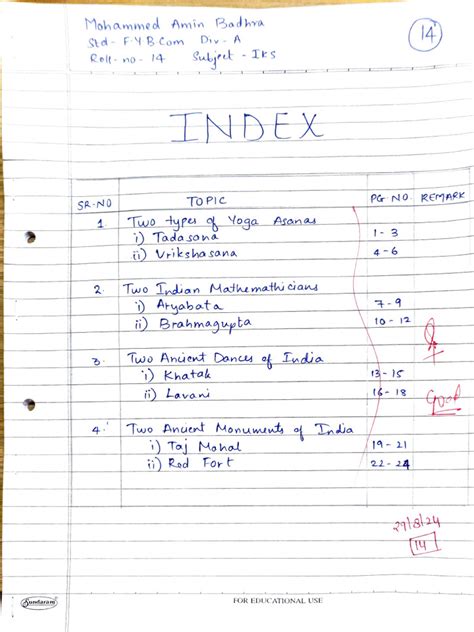 Mohammed Amin Badhra
Std - F.Y.B.Com Div - A
Roll-no - 14 Subject - Iks
14
INDEX
SR-NO TOPIC PG-NO REMARK
1 Two types of Yoga Asanas
i) Tadasana 1 - 3
ii) Vrikshasana 4 - 6
2. Two Indian Mathemathicians
i) Aryabata 7 - 9
ii) Brahmagupta 10 - 12
3. Two Ancient Dances of India
i) Khatak 13 - 15
ii) Lavani 16 - 18 Good
4. Two Ancient Monuments of India
i) Taj Mahal 19 - 21
ii) Red Fort 22 - 24
29/8/24
14
Sundaram FOR EDUCATIONAL USE